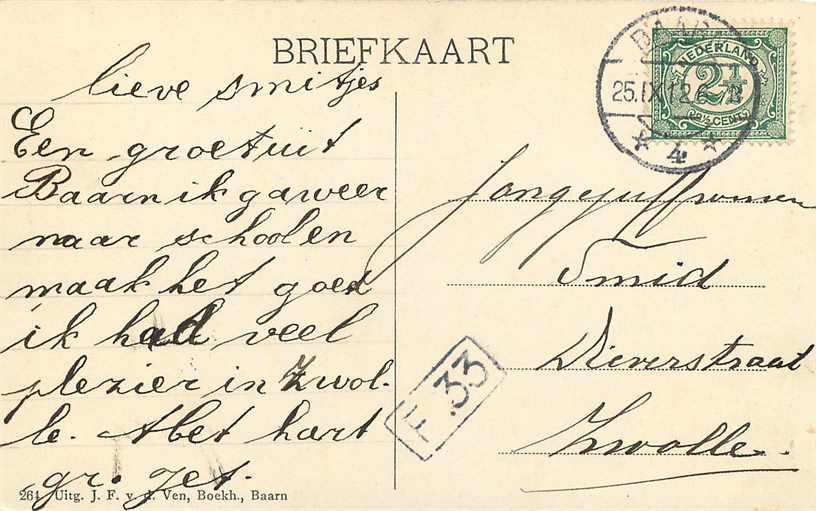 BRIEFKAART
lieve smitjes
Een groet uit
Baarn ik ga weer
naar school en
maak het goed
ik had veel
plezier in Zwol-
le. Met hart
gr. Jet.
264 Uitg. J. F. v. d. Ven, Boekh., Baarn
BAARN
25.IX.12.6-7N
4
NEDERLAND
2½
2½ CENT
Jongejuffrouwen
Smid
Dieverstraat
Zwolle.
F.33